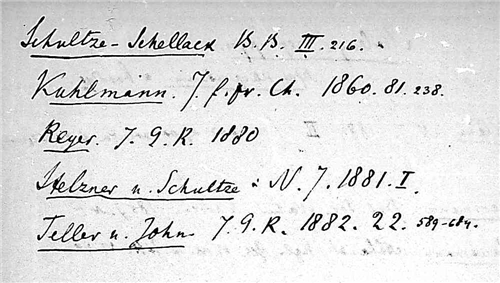 Schultze-Schellack B. B. III. 216.
Kuhlmann. J. f. pr. Ch. 1860. 81. 238.
Reyer. J. G. R. 1880
Stelzner u. Schultze: N. J. 1881. I.
Teller u. John. J. G. R. 1882. 22. 589-684.